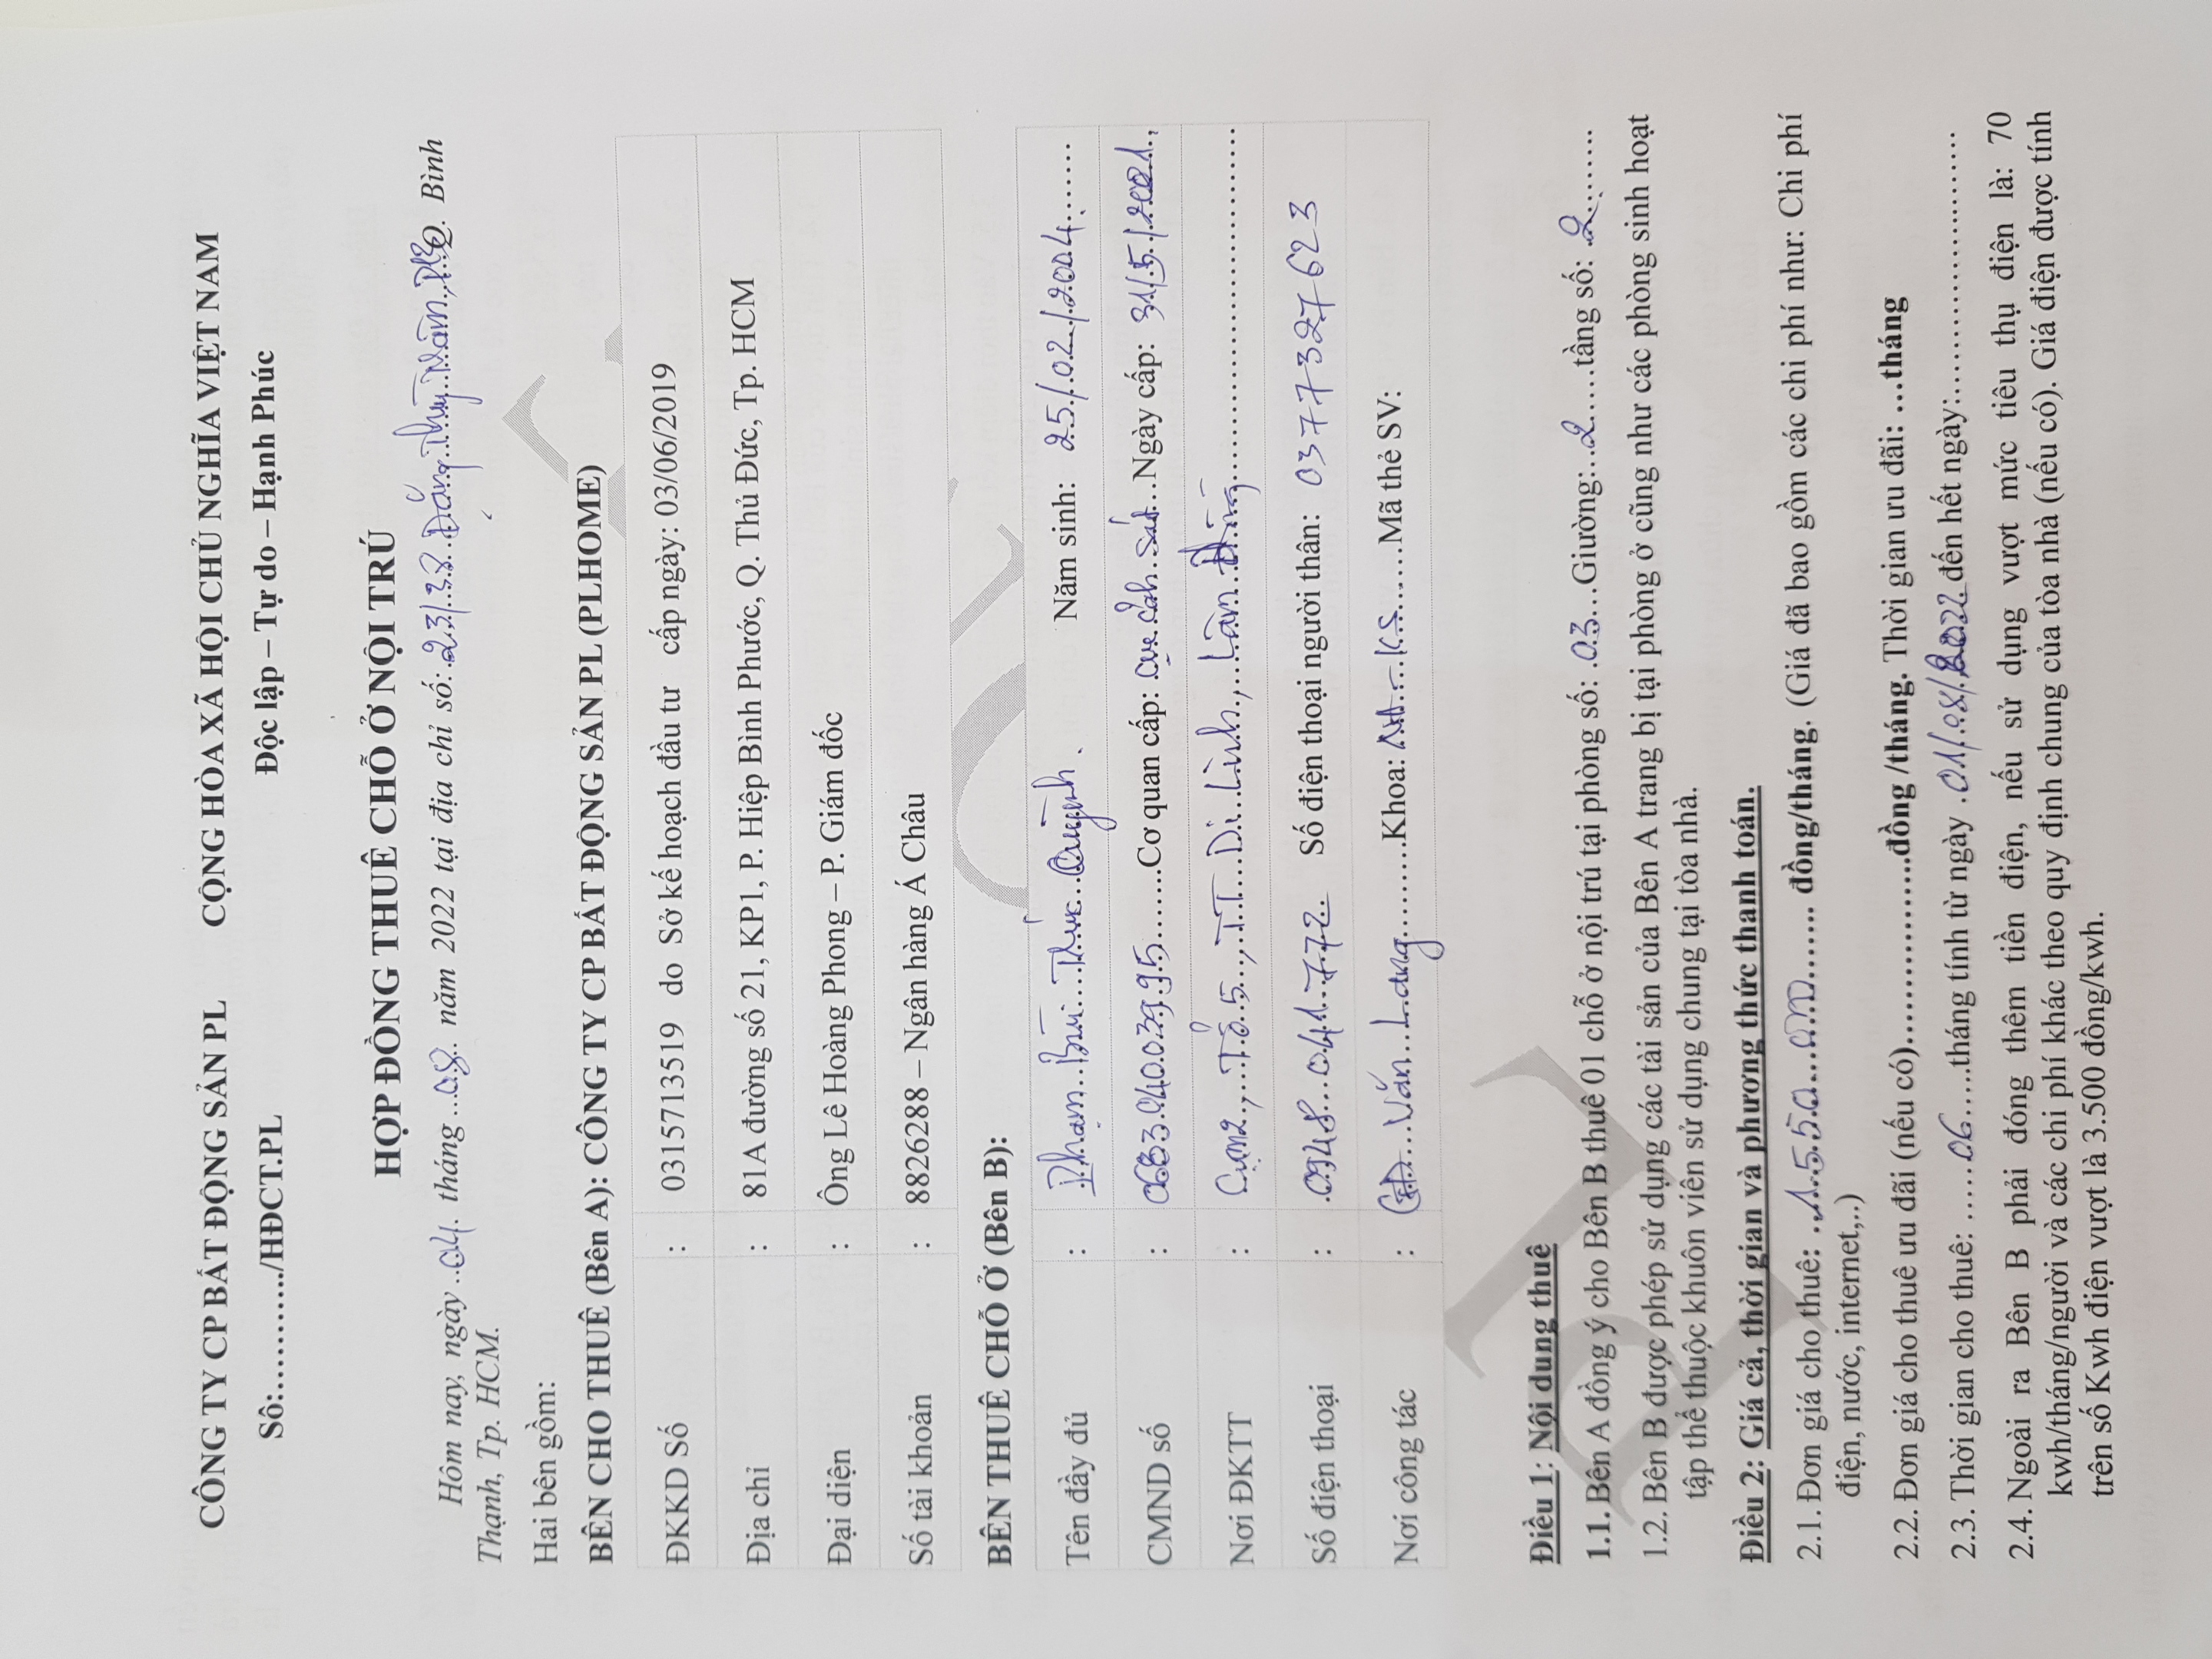 CÔNG TY CP BẤT ĐỘNG SẢN PL CỘNG HÒA XÃ HỘI CHỦ NGHĨA VIỆT NAM
Số:............/HĐCT.PL Độc lập – Tự do – Hạnh Phúc
HỢP ĐỒNG THUÊ CHỖ Ở NỘI TRÚ
Hôm nay, ngày ..04.. tháng ...08.. năm 2022 tại địa chỉ số: 23/38 Đặng Thùy Trâm, Q. Bình
Thạnh, Tp. HCM.
Hai bên gồm:
BÊN CHO THUÊ (Bên A): CÔNG TY CP BẤT ĐỘNG SẢN PL (PLHOME)
ĐKKD Số : 0315713519 do Sở kế hoạch đầu tư cấp ngày: 03/06/2019
Địa chỉ : 81A đường số 21, KP1, P. Hiệp Bình Phước, Q. Thủ Đức, Tp. HCM
Đại diện : Ông Lê Hoàng Phong – P. Giám đốc
Số tài khoản : 88826288 – Ngân hàng Á Châu
BÊN THUÊ CHỖ Ở (Bên B):
Tên đầy đủ : Phạm Bùi Thúc Quỳnh. Năm sinh: 25/02/2004
CMND số : Cơ quan cấp: cục cảnh sát Ngày cấp: 31/5/2021,
Nơi ĐKTT : Cụm2, Tổ 5, TT Di Linh, Lâm Đồng
Số điện thoại : 0948 041 772 Số điện thoại người thân: 0377327623
Nơi công tác : Văn Lang Khoa: KS Mã thẻ SV:
Điều 1: Nội dung thuê
1.1. Bên A đồng ý cho Bên B thuê 01 chỗ ở nội trú tại phòng số: .03...Giường:..2.....tầng số: .2........
1.2. Bên B được phép sử dụng các tài sản của Bên A trang bị tại phòng ở cũng như các phòng sinh hoạt
tập thể thuộc khuôn viên sử dụng chung tại tòa nhà.
Điều 2: Giá cả, thời gian và phương thức thanh toán.
2.1. Đơn giá cho thuê: ..1.550.000........ đồng/tháng. (Giá đã bao gồm các chi phí như: Chi phí
điện, nước, internet,..)
2.2. Đơn giá cho thuê ưu đãi (nếu có)....................đồng /tháng. Thời gian ưu đãi: ...tháng
2.3. Thời gian cho thuê: ......06.....tháng tính từ ngày .01/.08/.2022..đến hết ngày:........................
2.4. Ngoài ra Bên B phải đóng thêm tiền điện, nếu sử dụng vượt mức tiêu thụ điện là: 70
kwh/tháng/người và các chi phí khác theo quy định chung của tòa nhà (nếu có). Giá điện được tính
trên số Kwh điện vượt là 3.500 đồng/kwh.